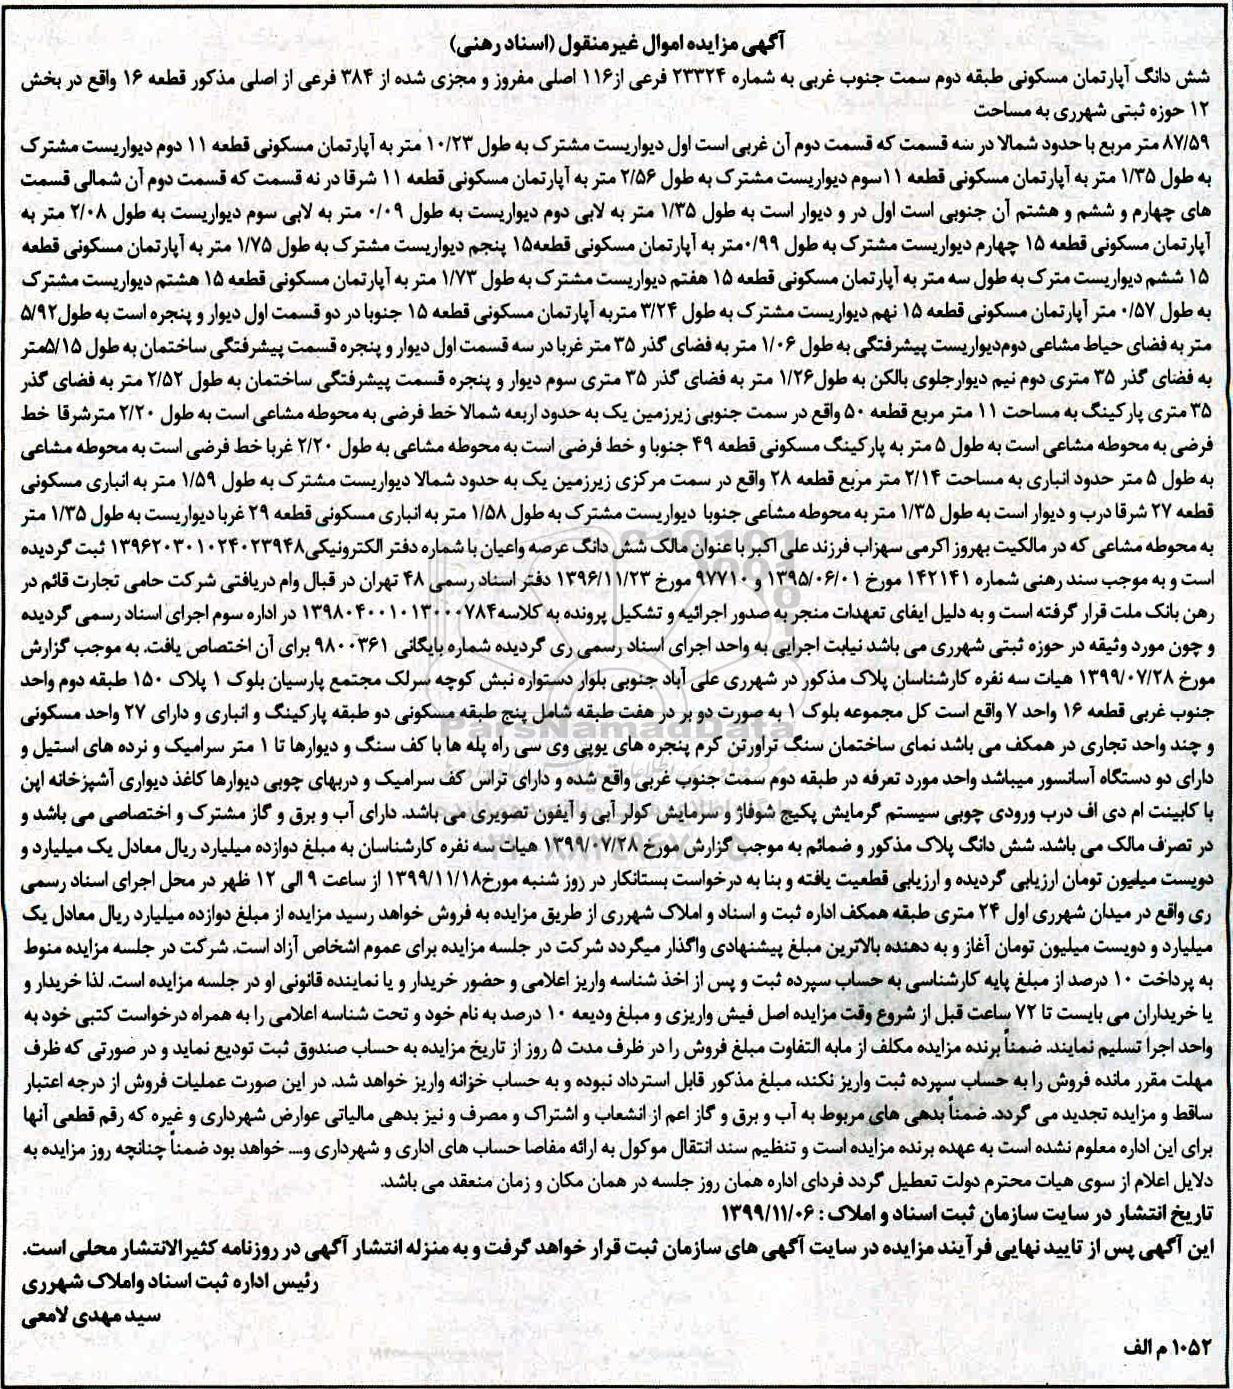 آگهی مزایده اموال غیرمنقول (اسناد رهنی)
شش دانگ آپارتمان مسکونی طبقه دوم سمت جنوب غربی به شماره ۲۳۳۲۴ فرعی از۱۱۶ اصلی مفروز و مجزی شده از ۳۸۴ فرعی از اصلی مذکور قطعه ۱۶ واقع در بخش
۱۲ حوزه ثبتی شهرری به مساحت
۸۷/۵۹ متر مربع با حدود شمالا در سه قسمت که قسمت دوم آن غربی است اول دیواریست مشترک به طول ۱۰/۲۳ متر به آپارتمان مسکونی قطعه ۱۱ دوم دیواریست مشترک
به طول ۱/۳۵ متر به آپارتمان مسکونی قطعه ۱۱سوم دیواریست مشترک به طول ۲/۵۶ متر به آپارتمان مسکونی قطعه ۱۱ شرقا در نه قسمت که قسمت دوم آن شمالی قسمت
های چهارم و ششم و هشتم آن جنوبی است اول در و دیوار است به طول ۱/۳۵ متر به لابی دوم دیواریست به طول ۰/۰۹ متر به لابی سوم دیواریست به طول ۲/۰۸ متر به
آپارتمان مسکونی قطعه ۱۵ چهارم دیواریست مشترک به طول ۰/۹۹متر به آپارتمان مسکونی قطعه۱۵ پنجم دیواریست مشترک به طول ۱/۷۵ متر به آپارتمان مسکونی قطعه
۱۵ ششم دیواریست مترک به طول سه متر به آپارتمان مسکونی قطعه ۱۵ هفتم دیواریست مشترک به طول ۱/۷۳ متر به آپارتمان مسکونی قطعه ۱۵ هشتم دیواریست مشترک
به طول ۰/۵۷ متر آپارتمان مسکونی قطعه ۱۵ نهم دیواریست مشترک به طول ۳/۲۴ متربه آپارتمان مسکونی قطعه ۱۵ جنوبا در دو قسمت اول دیوار و پنجره است به طول۵/۹۲
متر به فضای حیاط مشاعی دوم‌دیواریست پیشرفتگی به طول ۱/۰۶ متر به فضای گذر ۳۵ متر غربا در سه قسمت اول دیوار و پنجره قسمت پیشرفتگی ساختمان به طول ۵/۱۵متر
به فضای گذر ۳۵ متری دوم نیم دیوارجلوی بالکن به طول۱/۲۶ متر به فضای گذر ۳۵ متری سوم دیوار و پنجره قسمت پیشرفتگی ساختمان به طول ۲/۵۲ متر به فضای گذر
۳۵ متری پارکینگ به مساحت ۱۱ متر مربع قطعه ۵۰ واقع در سمت جنوبی زیرزمین یک به حدود اربعه شمالا خط فرضی به محوطه مشاعی است به طول ۲/۲۰ مترشرقا خط
فرضی به محوطه مشاعی است به طول ۵ متر به پارکینگ مسکونی قطعه ۴۹ جنوبا و خط فرضی است به محوطه مشاعی به طول ۲/۲۰ غربا خط فرضی است به محوطه مشاعی
به طول ۵ متر حدود انباری به مساحت ۲/۱۴ متر مربع قطعه ۲۸ واقع در سمت مرکزی زیرزمین یک به حدود شمالا دیواریست مشترک به طول ۱/۵۹ متر به انباری مسکونی
قطعه ۲۷ شرقا درب و دیوار است به طول ۱/۳۵ متر به محوطه مشاعی جنوبا دیواریست مشترک به طول ۱/۵۸ متر به انباری مسکونی قطعه ۲۹ غربا دیواریست به طول ۱/۳۵ متر
به محوطه مشاعی که در مالکیت بهروز اکرمی سهزاب فرزند علی اکبر با عنوان مالک شش دانگ عرصه واعیان با شماره دفتر الکترونیکی۱۳۹۶۲۰۳۰۱۰۲۴۰۲۳۹۴۸ ثبت گردیده
است و به موجب سند رهنی شماره ۱۴۲۱۴۱ مورخ ۱۳۹۵/۰۶/۰۱ و ۹۷۷۱۰ مورخ ۱۳۹۶/۱۱/۲۳ دفتر اسناد رسمی ۴۸ تهران در قبال وام دریافتی شرکت حامی تجارت قائم در
رهن بانک ملت قرار گرفته است و به دلیل ایفای تعهدات منجر به صدور اجرائیه و تشکیل پرونده به کلاسه۱۳۹۸۰۴۰۰۱۰۱۳۰۰۰۷۸۴ در اداره سوم اجرای اسناد رسمی گردیده
و چون مورد وثیقه در حوزه ثبتی شهرری می باشد نیابت اجرایی به واحد اجرای اسناد رسمی ری گردیده شماره بایگانی ۹۸۰۰۳۶۱ برای آن اختصاص یافت. به موجب گزارش
مورخ ۱۳۹۹/۰۷/۲۸ هیات سه نفره کارشناسان پلاک مذکور در شهرری علی آباد جنوبی بلوار دستواره نبش کوچه سرلک مجتمع پارسیان بلوک ۱ پلاک ۱۵۰ طبقه دوم واحد
جنوب غربی قطعه ۱۶ واحد ۷ واقع است کل مجموعه بلوک ۱ به صورت دو بر در هفت طبقه شامل پنج طبقه مسکونی دو طبقه پارکینگ و انباری و دارای ۲۷ واحد مسکونی
و چند واحد تجاری در همکف می باشد نمای ساختمان سنگ تراورتن کرم پنجره های یوپی وی سی راه پله ها با کف سنگ و دیوارها تا ۱ متر سرامیک و نرده های استیل و
دارای دو دستگاه آسانسور میباشد واحد مورد تعرفه در طبقه دوم سمت جنوب غربی واقع شده و دارای تراس کف سرامیک و دربهای چوبی دیوارها کاغذ دیواری آشپزخانه اپن
با کابینت ام دی اف درب ورودی چوبی سیستم گرمایش پکیج شوفاژ و سرمایش کولر آبی و آیفون تصویری می باشد. دارای آب و برق و گاز مشترک و اختصاصی می باشد و
در تصرف مالک می باشد. شش دانگ پلاک مذکور و ضمائم به موجب گزارش مورخ ۱۳۹۹/۰۷/۲۸ هیات سه نفره کارشناسان به مبلغ دوازده میلیارد ریال معادل یک میلیارد و
دویست میلیون تومان ارزیابی گردیده و ارزیابی قطعیت یافته و بنا به درخواست بستانکار در روز شنبه مورخ۱۳۹۹/۱۱/۱۸ از ساعت ۹ الی ۱۲ ظهر در محل اجرای اسناد رسمی
ری واقع در میدان شهرری اول ۲۴ متری طبقه همکف اداره ثبت و اسناد و املاک شهرری از طریق مزایده به فروش خواهد رسید مزایده از مبلغ دوازده میلیارد ریال معادل یک
میلیارد و دویست میلیون تومان آغاز و به دهنده بالاترین مبلغ پیشنهادی واگذار میگردد شرکت در جلسه مزایده برای عموم اشخاص آزاد است. شرکت در جلسه مزایده منوط
به پرداخت ۱۰ درصد از مبلغ پایه کارشناسی به حساب سپرده ثبت و پس از اخذ شناسه واریز اعلامی و حضور خریدار و یا نماینده قانونی او در جلسه مزایده است. لذا خریدار و
یا خریداران می بایست تا ۷۲ ساعت قبل از شروع وقت مزایده اصل فیش واریزی و مبلغ ودیعه ۱۰ درصد به نام خود و تحت شناسه اعلامی را به همراه درخواست کتبی خود به
واحد اجرا تسلیم نمایند. ضمناً برنده مزایده مکلف از مابه التفاوت مبلغ فروش را در ظرف مدت ۵ روز از تاریخ مزایده به حساب صندوق ثبت تودیع نماید و در صورتی که ظرف
مهلت مقرر مانده فروش را به حساب سپرده ثبت واریز نکند، مبلغ مذکور قابل استرداد نبوده و به حساب خزانه واریز خواهد شد. در این صورت عملیات فروش از درجه اعتبار
ساقط و مزایده تجدید می گردد. ضمناً بدهی های مربوط به آب و برق و گاز اعم از انشعاب و اشتراک و مصرف و نیز بدهی مالیاتی عوارض شهرداری و غیره که رقم قطعی آنها
برای این اداره معلوم نشده است به عهده برنده مزایده است و تنظیم سند انتقال موکول به ارائه مفاصا حساب های اداری و شهرداری و.... خواهد بود ضمناً چنانچه روز مزایده به
دلایل اعلام از سوی هیات محترم دولت تعطیل گردد فردای اداره همان روز جلسه در همان مکان و زمان منعقد می باشد.
تاریخ انتشار در سایت سازمان ثبت اسناد و املاک : ۱۳۹۹/۱۱/۰۶
این آگهی پس از تایید نهایی فرآیند مزایده در سایت آگهی های سازمان ثبت قرار خواهد گرفت و به منزله انتشار آگهی در روزنامه کثیرالانتشار محلی است.
رئیس اداره ثبت اسناد واملاک شهرری
سید مهدی لامعی
۱۰۵۲ م الف
ParsNamadData